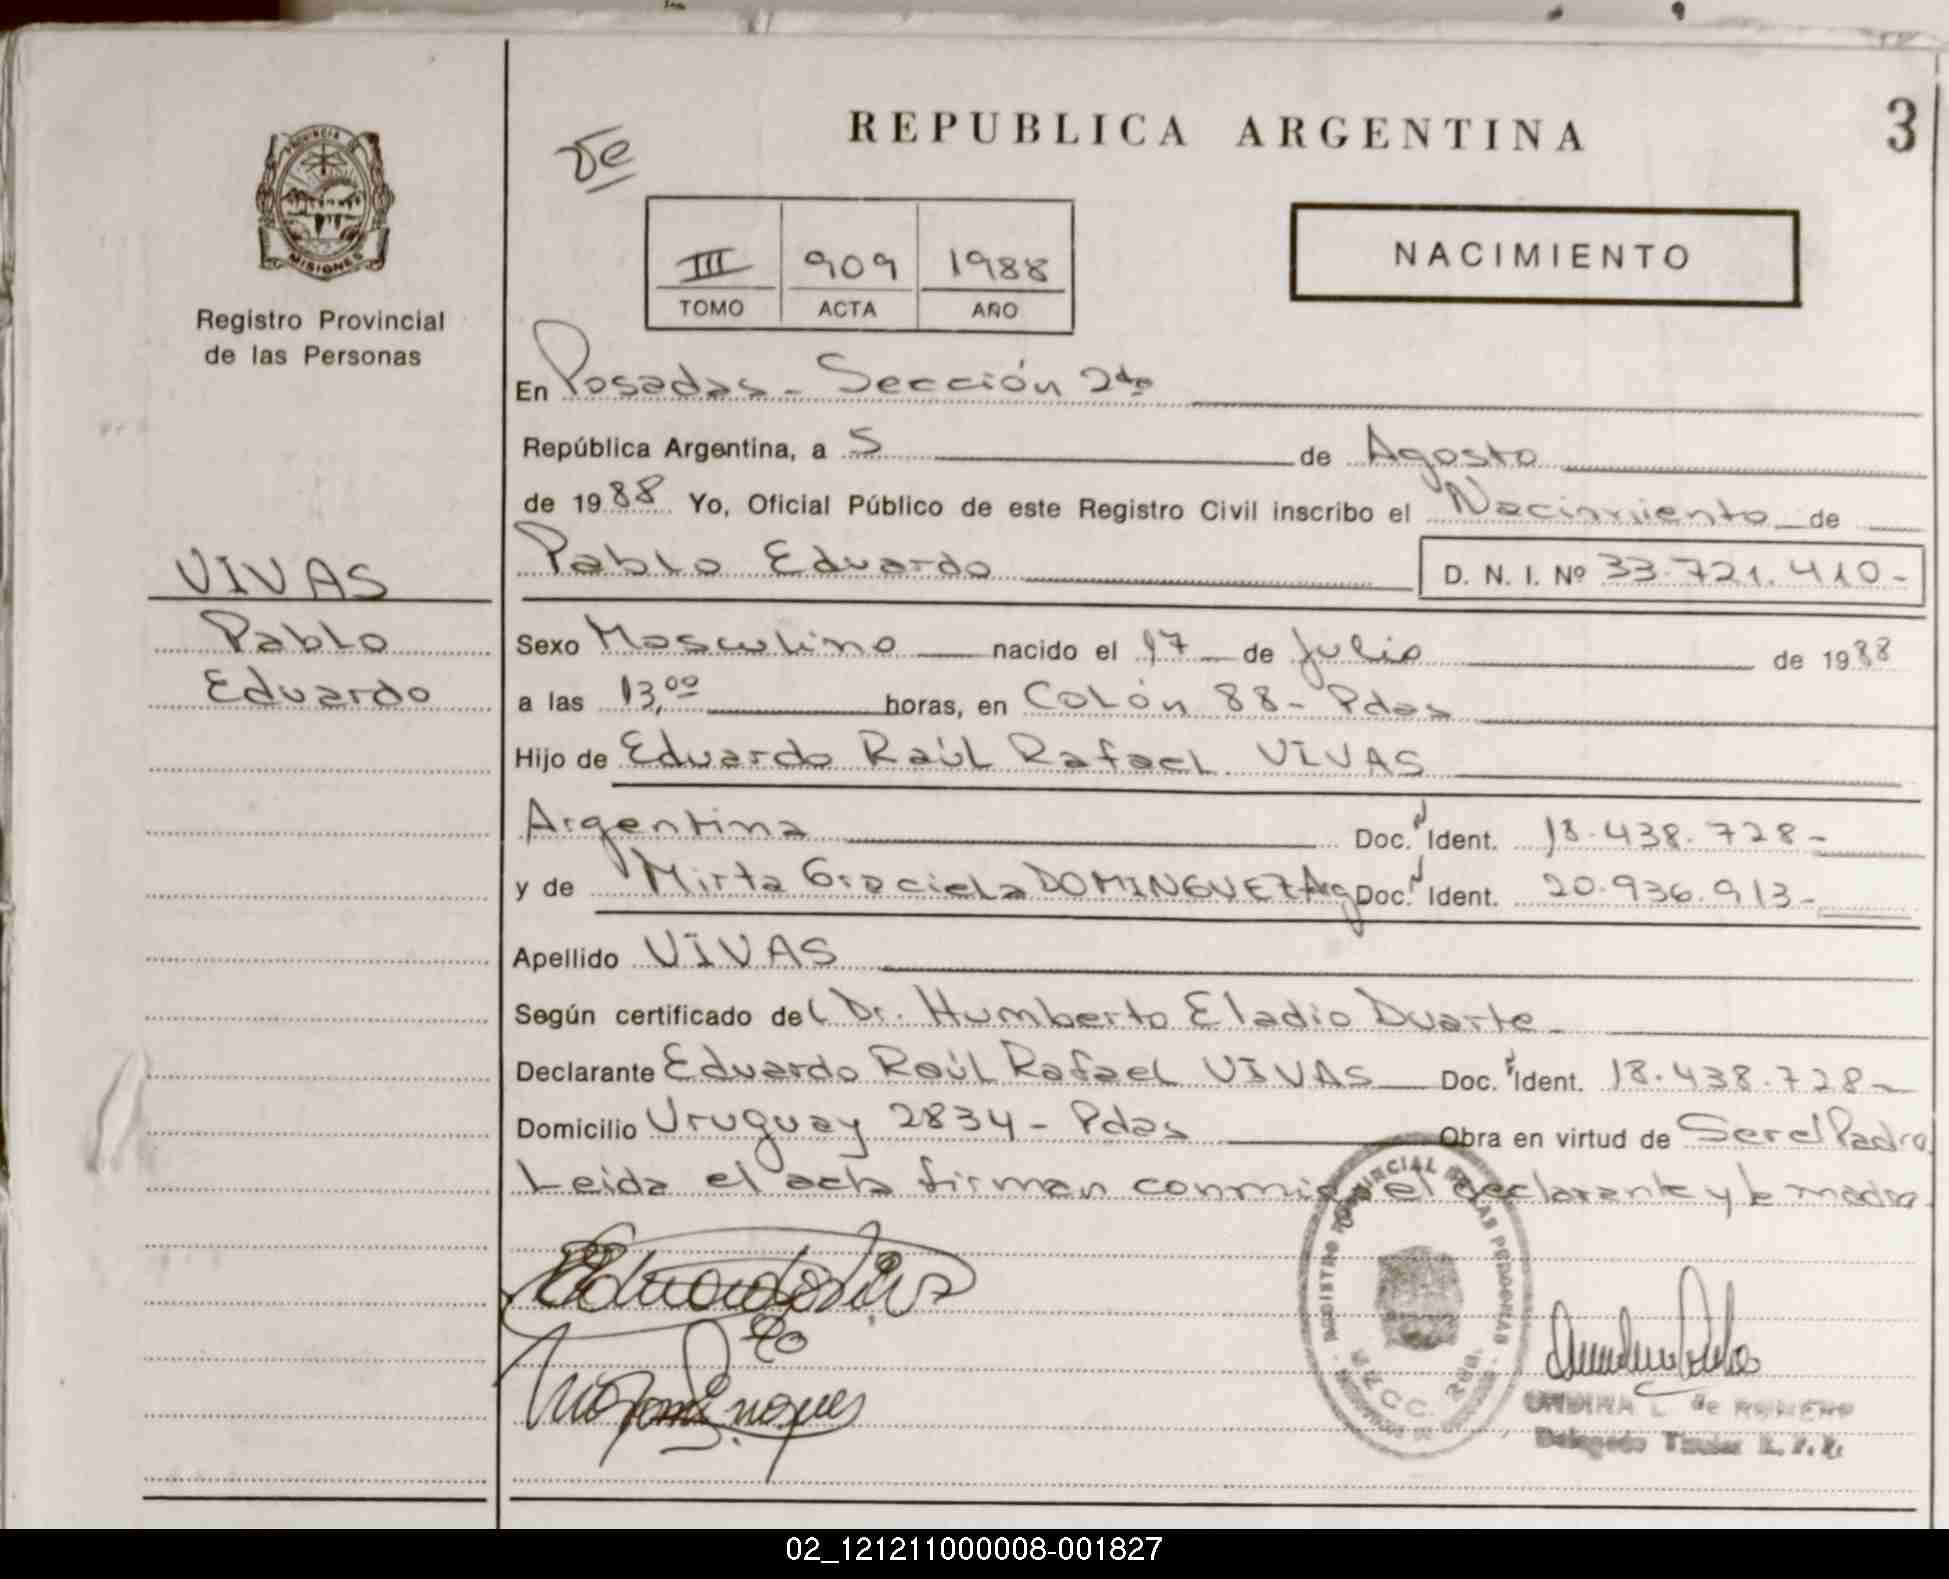 REPUBLICA ARGENTINA
3
PROVINCIA DE
MISIONES
Registro Provincial
de las Personas
III
909
1988
TOMO
ACTA
AÑO
NACIMIENTO
En Posadas - Sección 2da
República Argentina, a 5 de Agosto
de 1988 Yo, Oficial Público de este Registro Civil inscribo el Nacimiento de
VIVAS
Pablo
Eduardo
Pablo Eduardo D. N. I. Nº 33.721.410-
Sexo Masculino nacido el 17 de Julio de 1988
a las 13,00 horas, en Colón 88 - Pdas
Hijo de Eduardo Raúl Rafael VIVAS
Argentina Doc. Ident. 18.438.728-
y de Mirta Graciela DOMINGUEZ Arg Doc. Ident. 20.936.913-
Apellido VIVAS
Según certificado del Dr. Humberto Eladio Duarte
Declarante Eduardo Raúl Rafael VIVAS Doc. Ident. 18.438.728-
Domicilio Uruguay 2834 - Pdas Obra en virtud de Ser el Padre
Leida el acta firman conmigo el declarante y la madre
de ROMERO
Delegado Titular R. P. P.
02_121211000008-001827